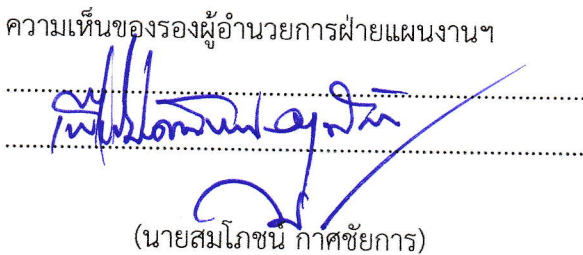 ความเห็นของรองผู้อำนวยการฝ่ายแผนงานฯ
(นายสมโภชน์ กาศชัยการ)